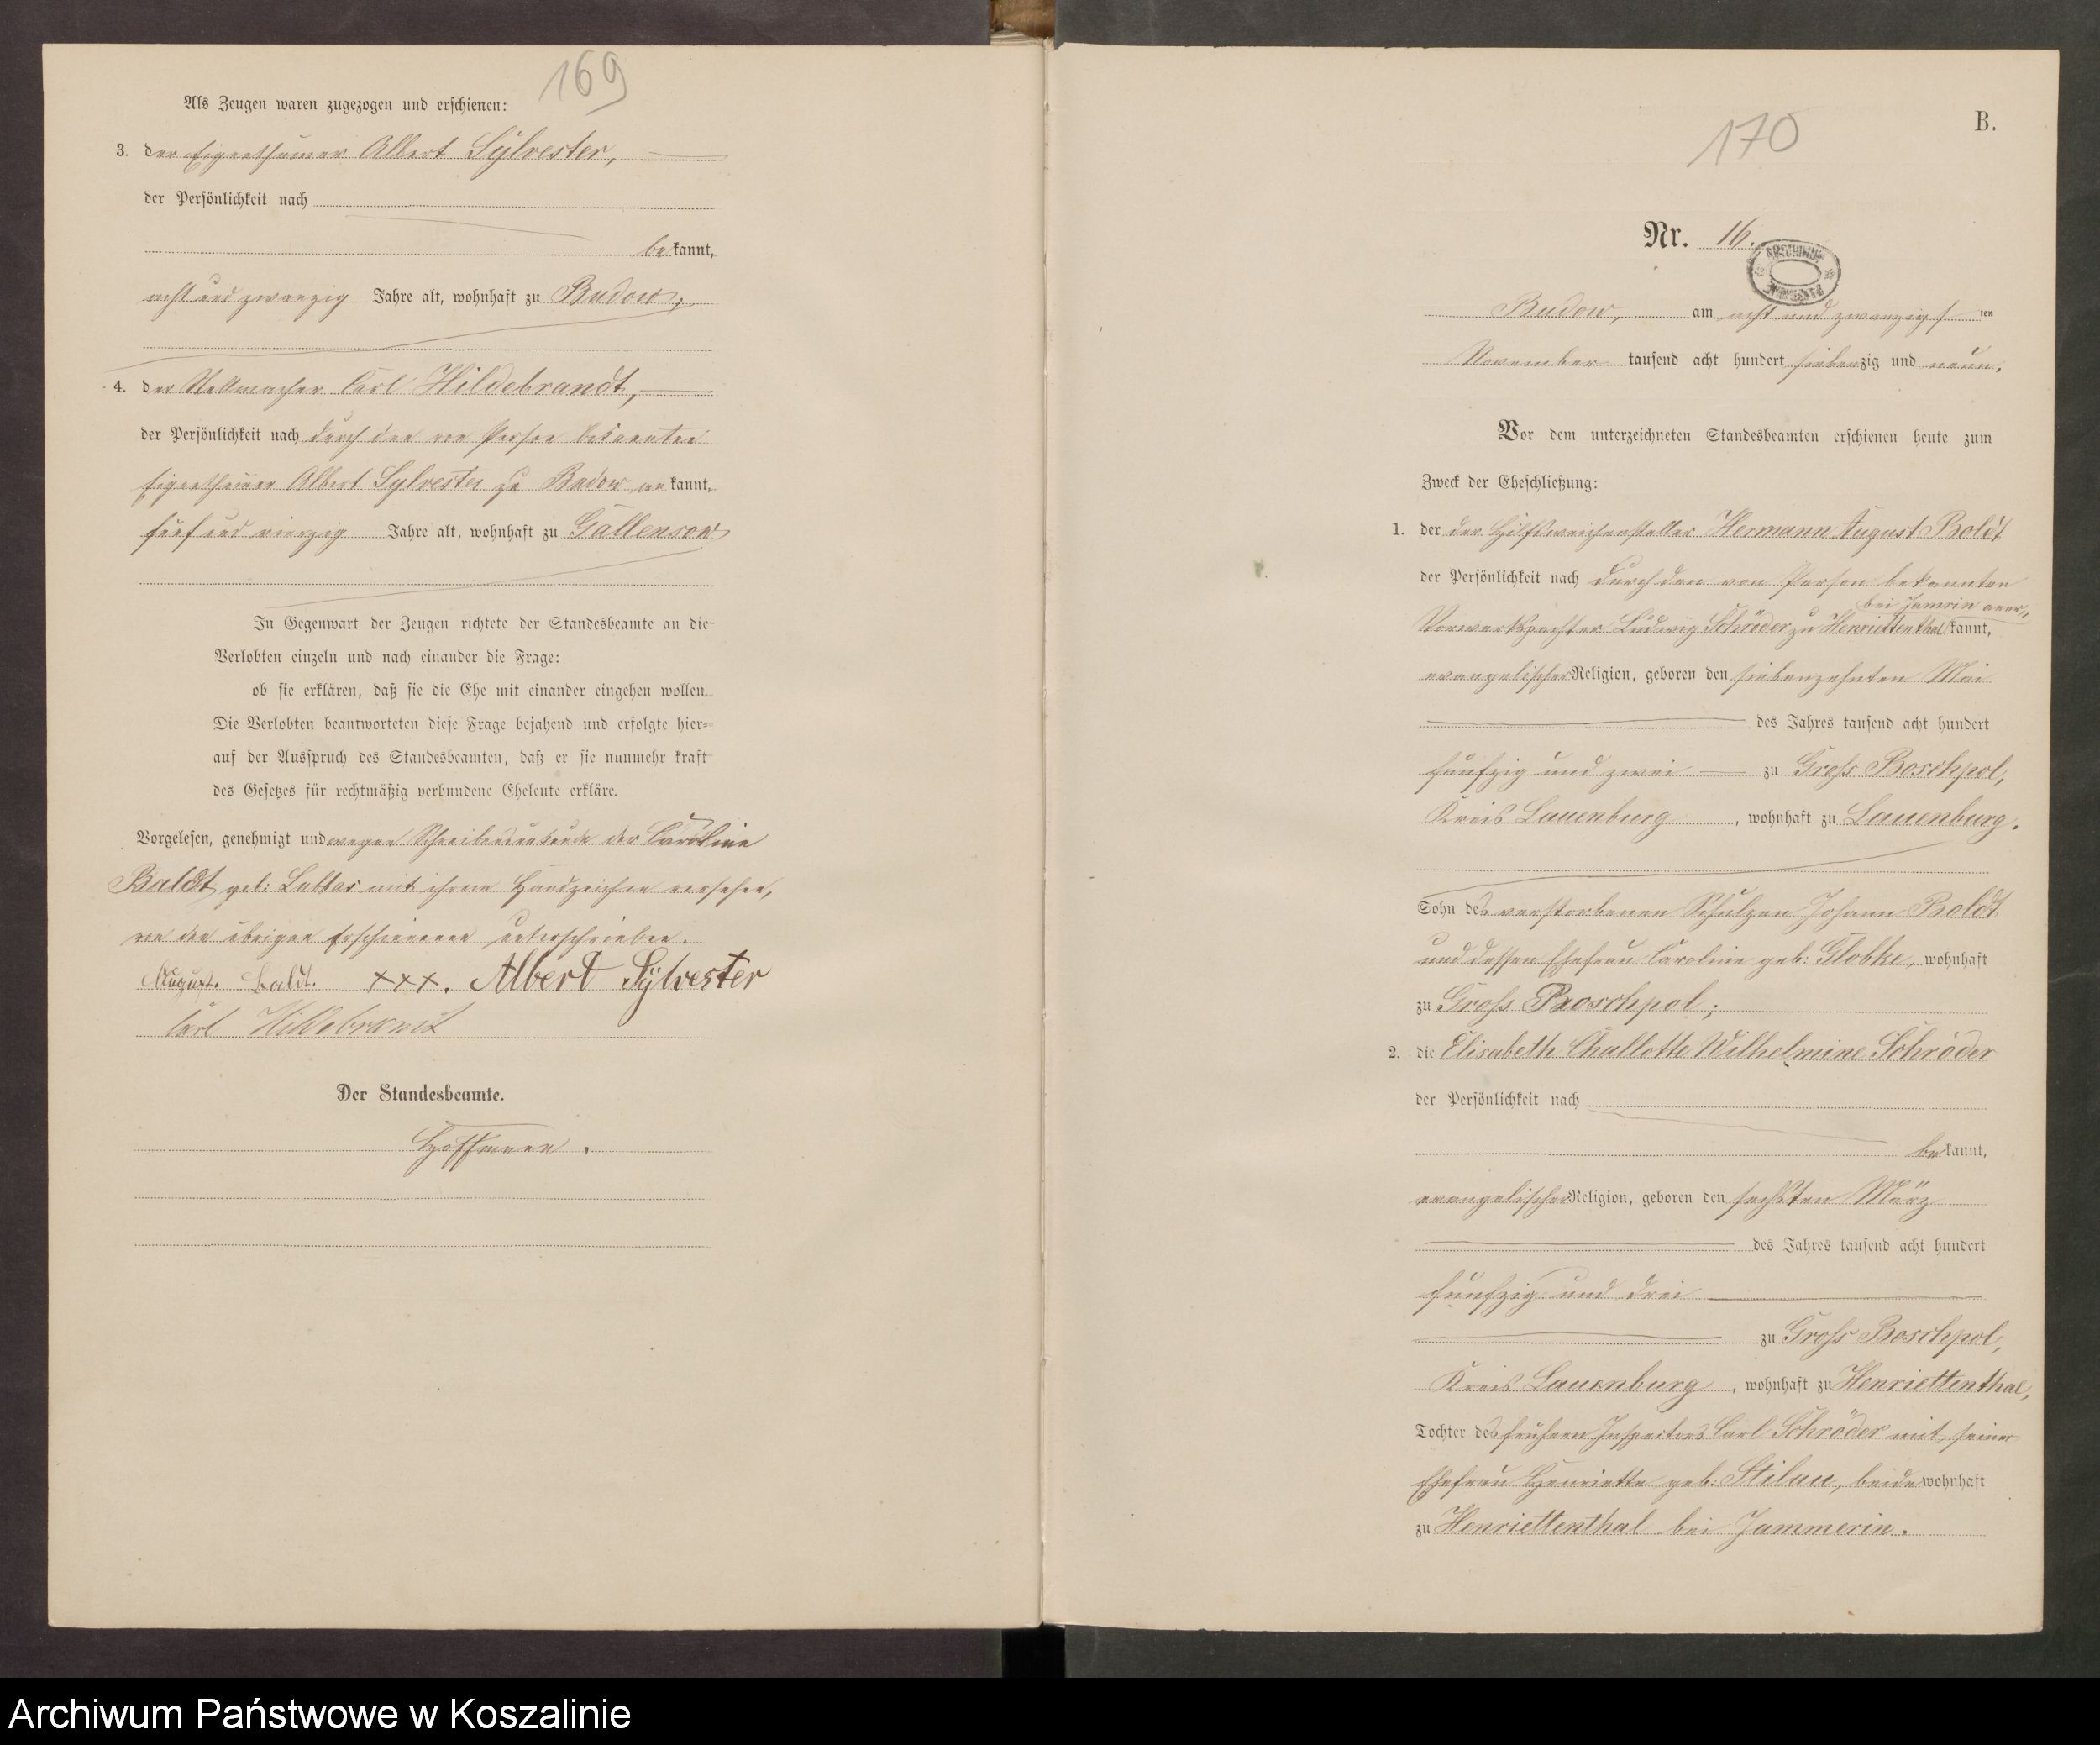 169
Als Zeugen waren zugezogen und erschienen:
3. der Eigenthümer Albert Sylvester,
der Persönlichkeit nach
bekannt,
acht und zwanzig Jahre alt, wohnhaft zu Budow;
4. der Stellmacher Carl Hildebrandt,
der Persönlichkeit nach durch den von Person bekannten
Eigenthümer Albert Sylvester zu Budow anerkannt,
fünf und vierzig Jahre alt, wohnhaft zu Gallensow
In Gegenwart der Zeugen richtete der Standesbeamte an die
Verlobten einzeln und nach einander die Frage:
ob sie erklären, daß sie die Ehe mit einander eingehen wollen.
Die Verlobten beantworteten diese Frage bejahend und erfolgte hier-
auf der Ausspruch des Standesbeamten, daß er sie nunmehr kraft
des Gesetzes für rechtmäßig verbundene Eheleute erkläre.
Vorgelesen, genehmigt und wegen Schreibensunkunde der Caroline
Baldt geb: mit ihrem Handzeichen versehen,
von den übrigen Erschienenen unterschrieben.
August. Baldt. xxx. Albert Sylvester
Carl Hildebrandt
Der Standesbeamte.
Hoffmann.
170
B.
Nr. 16.
Budow, am acht und zwanzigsten
November tausend acht hundert siebenzig und neun.
Vor dem unterzeichneten Standesbeamten erschienen heute zum
Zweck der Eheschließung:
1. der der Hilfsweichensteller Hermann August Boldt
der Persönlichkeit nach durch den von Person bekannten
bei Jamrin aner-
Vorwerkspächter Ludwig Schröder zu Henriettenthal kannt,
evangelischer Religion, geboren den siebenzehnten Mai
des Jahres tausend acht hundert
fünfzig und zwei zu Gross Boschpol,
Kreis Lauenburg, wohnhaft zu Lauenburg.
Sohn des verstorbenen Schulzen Johann Boldt
und dessen Ehefrau Caroline geb: Globke, wohnhaft
zu Gross Boschpol;
2. die Elisabeth Challotte Wilhelmine Schröder
der Persönlichkeit nach
bekannt,
evangelischer Religion, geboren den sechsten März
des Jahres tausend acht hundert
fünfzig und drei
zu Gross Boschpol,
Kreis Lauenburg, wohnhaft zu Henriettenthal,
Tochter des frühern Inspectors Carl Schröder mit seiner
Ehefrau Henriette geb: Stilau, beide wohnhaft
zu Henriettenthal bei Jammerin.
Archiwum Państwowe w Koszalinie